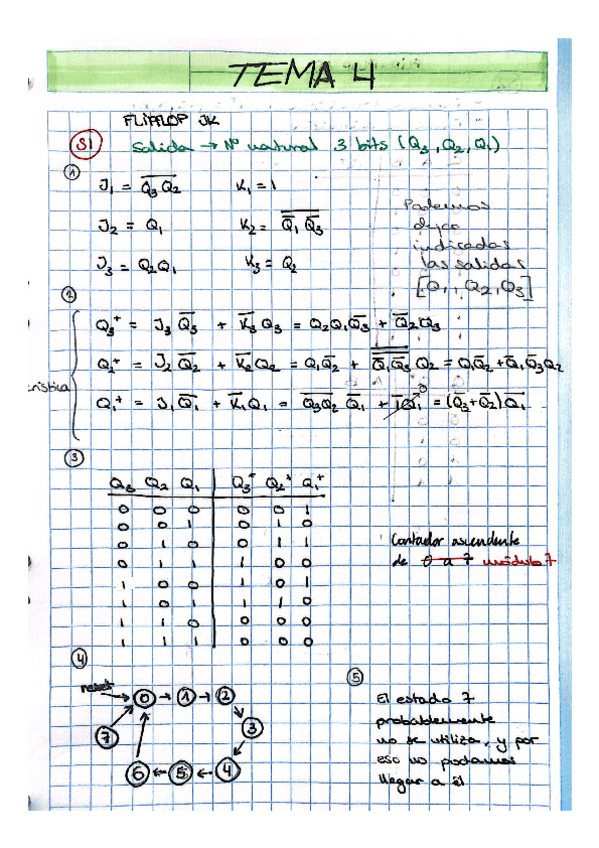 TEMA 4
FLIPFLOP JK
S1 Salida → Nº natural 3 bits (Q₃, Q₂, Q₁)
①
J₁ = \overline{Q₃Q₂} K₁ = 1
J₂ = Q₁ K₂ = \overline{\overline{Q₁}\,\overline{Q₃}}
J₃ = Q₂Q₁ K₃ = Q₂
Podemos
indicadas
las salidas
[Q₁, Q₂, Q₃]
②
Q₃⁺ = J₃\overline{Q₃} + \overline{K₃}Q₃ = Q₂Q₁\overline{Q₃} + \overline{Q₂}Q₃
Q₂⁺ = J₂\overline{Q₂} + \overline{K₂}Q₂ = Q₁\overline{Q₂} + \overline{\overline{\overline{Q₁}\,\overline{Q₃}}}Q₂ = Q₁\overline{Q₂} + \overline{Q₁}\,\overline{Q₃}Q₂
Q₁⁺ = J₁\overline{Q₁} + \overline{K₁}Q₁ = \overline{Q₃Q₂}\,\overline{Q₁} + \overline{1}Q₁ 0 = (\overline{Q₃}+\overline{Q₂})\overline{Q₁}
rística
③
Q₃ Q₂ Q₁ Q₃⁺ Q₂⁺ Q₁⁺
0 0 0 0 0 1
0 0 1 0 1 0
0 1 0 0 1 1
0 1 1 1 0 0
1 0 0 1 0 1
1 0 1 1 1 0
1 1 0 0 0 0
1 1 1 0 0 0
Contador ascendente
de 0 a 7 módulo 7
④
reset
0 → 1 → 2
3
7
6 ← 5 ← 4
⑤
El estado 7
probablemente
no se utiliza, y por
eso no podamos
llegar a él